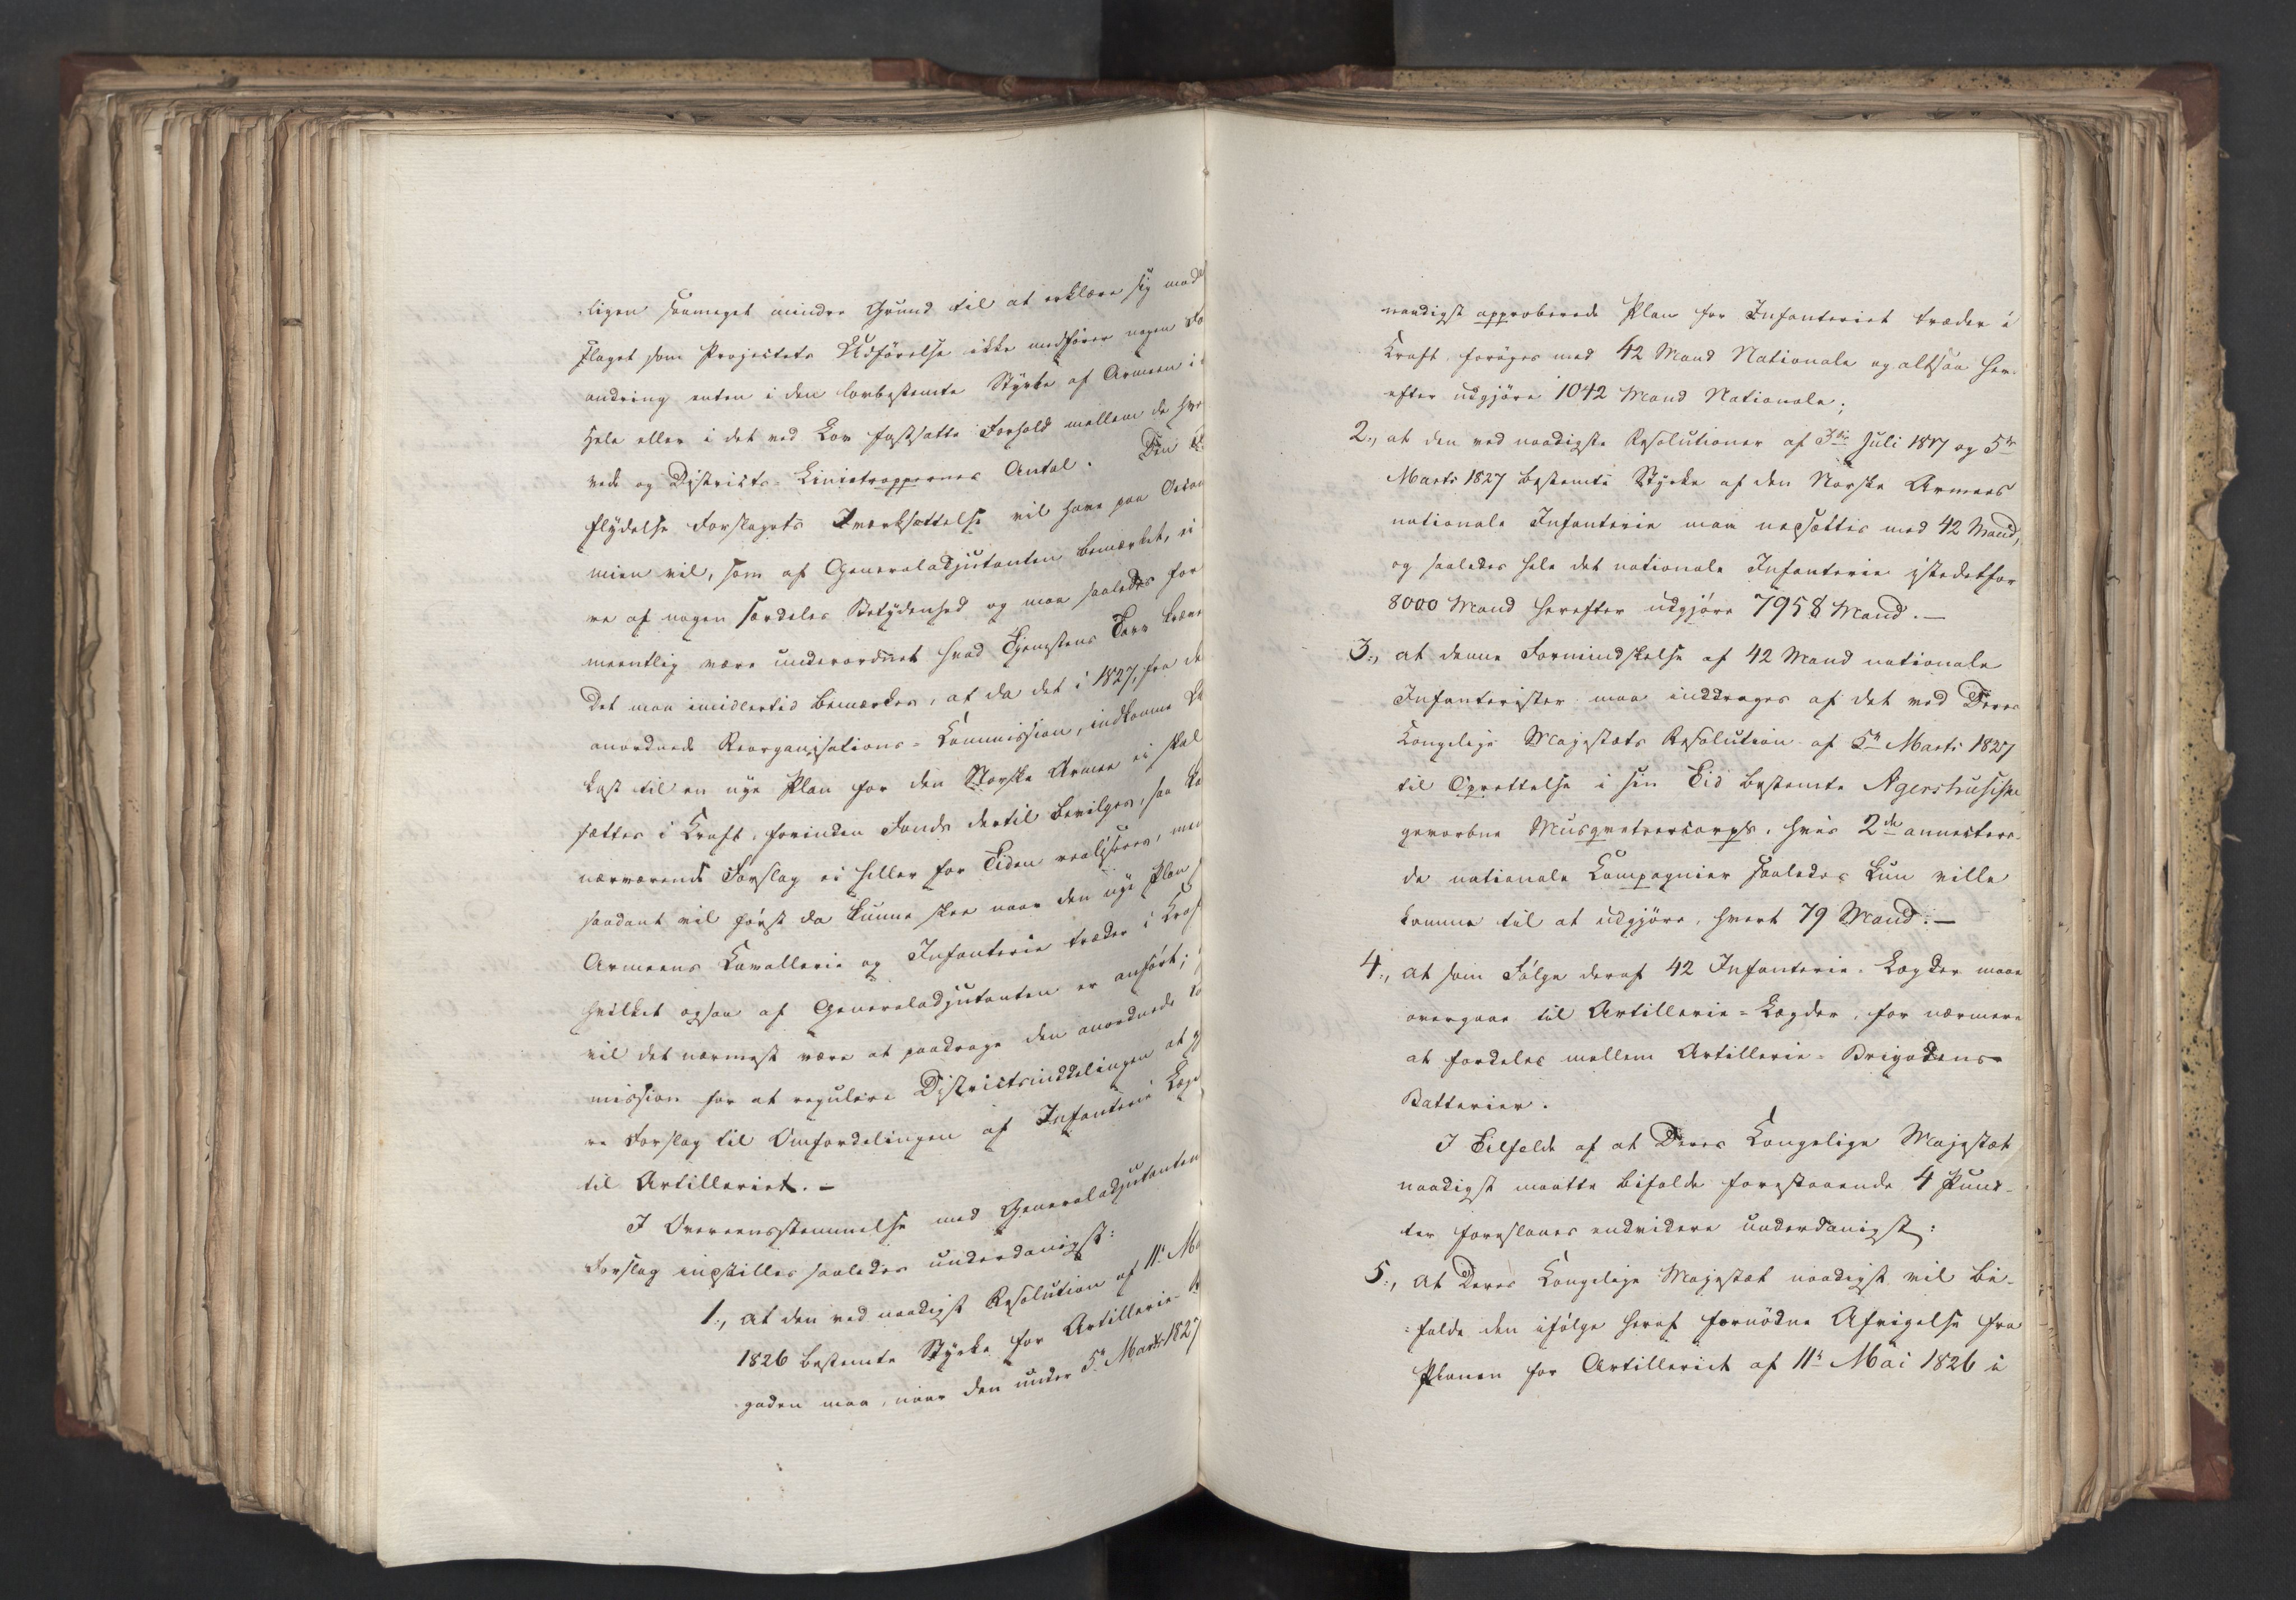 ligen saameget mindre Grund til at erklære sig mod
slaget som Projectets Udførelse ikke medfører nogen
andring enten i den lovbestemte Styrke af Armeen i
Hele eller i det ved Lov fastsatte Forhold mellem de
vede og Districts-Linietroppernes Antal. Den
flydelse Forslagets Iværksættelse vil have paa
mien vil, som af Generaladjutanten bemærket, ei
re af nogen særdeles Betydenhed og maa saaledes for
meentlig være underordnet hvad Tjenestens Tarv
Det maa imidlertid bemærkes, at da det i 1827, fra
anordnede Reorganisations-Commission, indkomne
kast til en nye Plan for den Norske Armee ei skal
sættes i Kraft, forinden Fonds dertil bevilges, saa
nærværende Forslag ei heller for Tiden realiseres, men
saadant vil først da kunne skee naar den nye Plan
Armeens Cavallerie og Infanterie træder i Kraft
hvilket ogsaa af Generaladjutanten er anført;
vil det nærmest være at paadrage den anordnede
mission for at regulere Districtsinddelingen at
re Forslag til Omfordelingen af Infanterie
til Artilleriet. -
I Overeensstemmelse med Generaladjutanten
Forslag indstilles saaledes underdanigst:
1., at den ved naadigst Resolution af 11te
1826 bestemte Styrke for Artillerie-
gaden maa, naar den under 5te Marts 1827
naadigst approberede Plan for Infanteriet træder i
Kraft, forøges med 42 Mand Nationale og altsaa her-
efter udgjøre 1042 Mand Nationale;
2., at den ved naadigste Resolutioner af Juli 1817 og 5te
Marts 1827 bestemte Styrke af den Norske Armees
nationale Infanterie maa nedsættes med 42 Mand,
og saaledes hele det nationale Infanterie istedetfor
8000 Mand herefter udgjøre 7958 Mand. -
3., at denne Formindskelse af 42 Mand nationale
Infanterister maa inddrages af det ved Deres
Kongelige Majestæts Resolution af 5te Marts 1827
til Oprettelse i sin Tid bestemte Agershusiske
gevorbne Musqveteercorps, hvis 2de annectere-
de nationale Compagnier saaledes kun ville
komme til at udgjøre, hvert 79 Mand. -
4., at som Følge deraf 42 Infanterie-Lægder maae
overgaae til Artillerie-Lægder, for nærmere
at fordeles mellem Artillerie-Brigadens
Batterier.
I Tilfælde af at Deres Kongelige Majestæt
naadigst maatte bifalde forestaaende 4 Punc-
ter foreslaaes endvidere underdanigst:
5., at Deres Kongelige Majestæt naadigst vil bi-
falde den ifølge heraf fornødne Afvigelse fra
Planen for Artilleriet af 11te Mai 1826 i